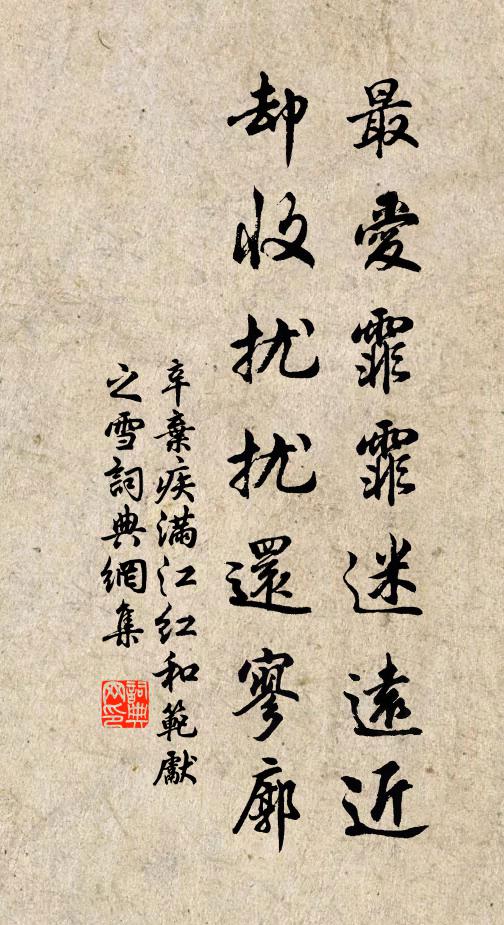 最愛霏霏迷遠近
却收扰扰還寥廓
辛棄疾滿江红和範獻
之雪詞典網集
詞典網印